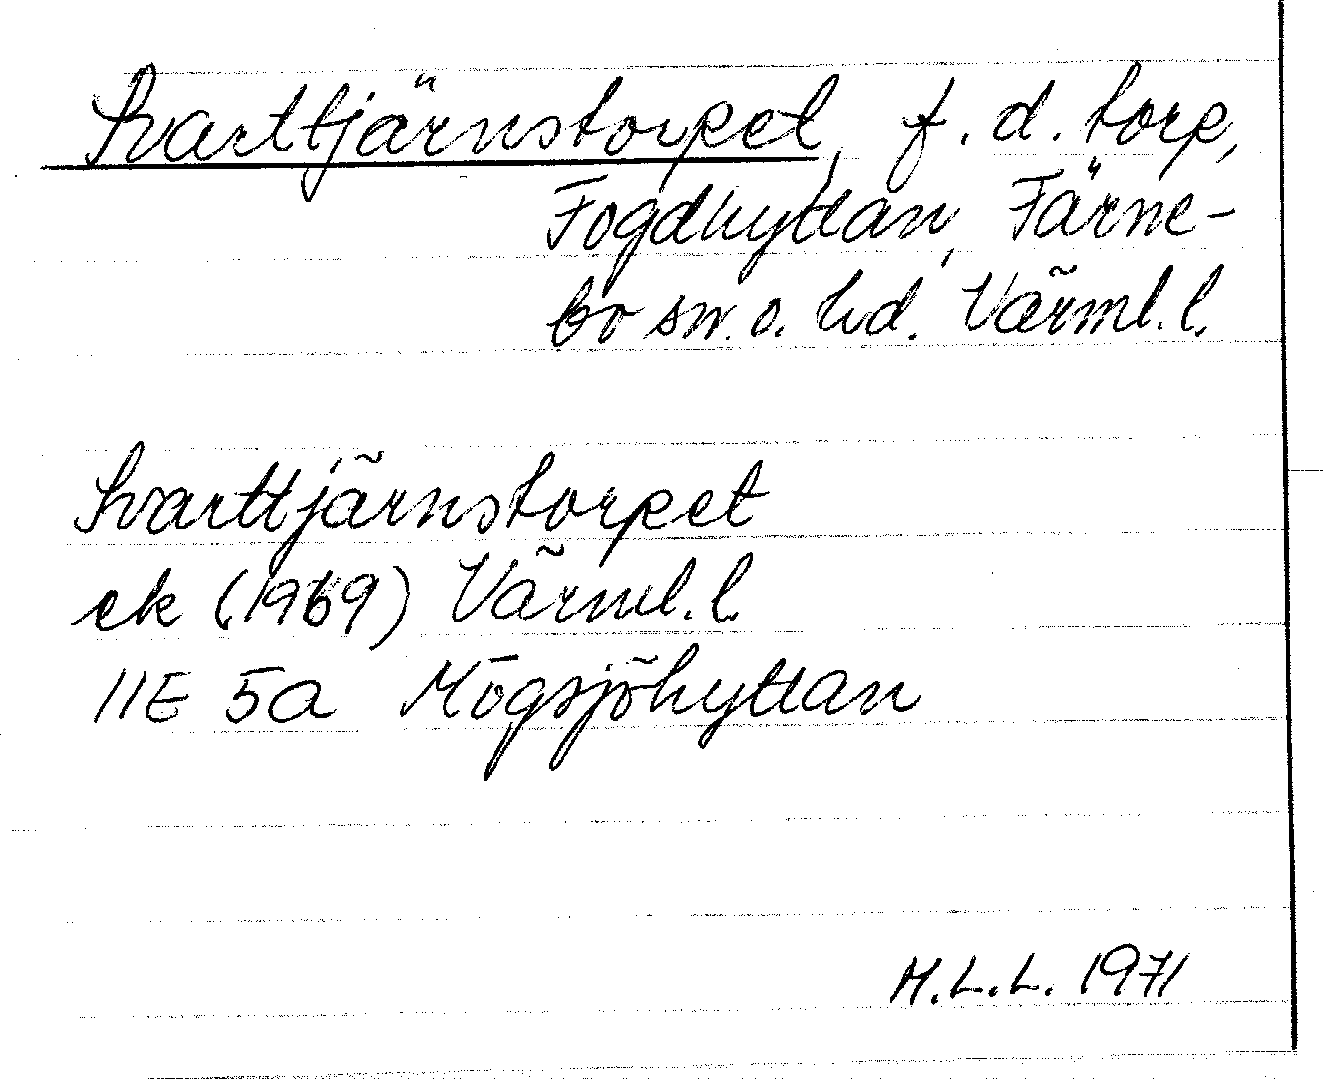 Svarttjärnstorpet, f.d. torp,
Fogdhyttan, Färne-
bo sn. o. hd. Värml. l.
Svarttjärnstorpet
ek (1969) Värml. l.
11E 5a Mögsjöhyttan
M.L.L. 1971